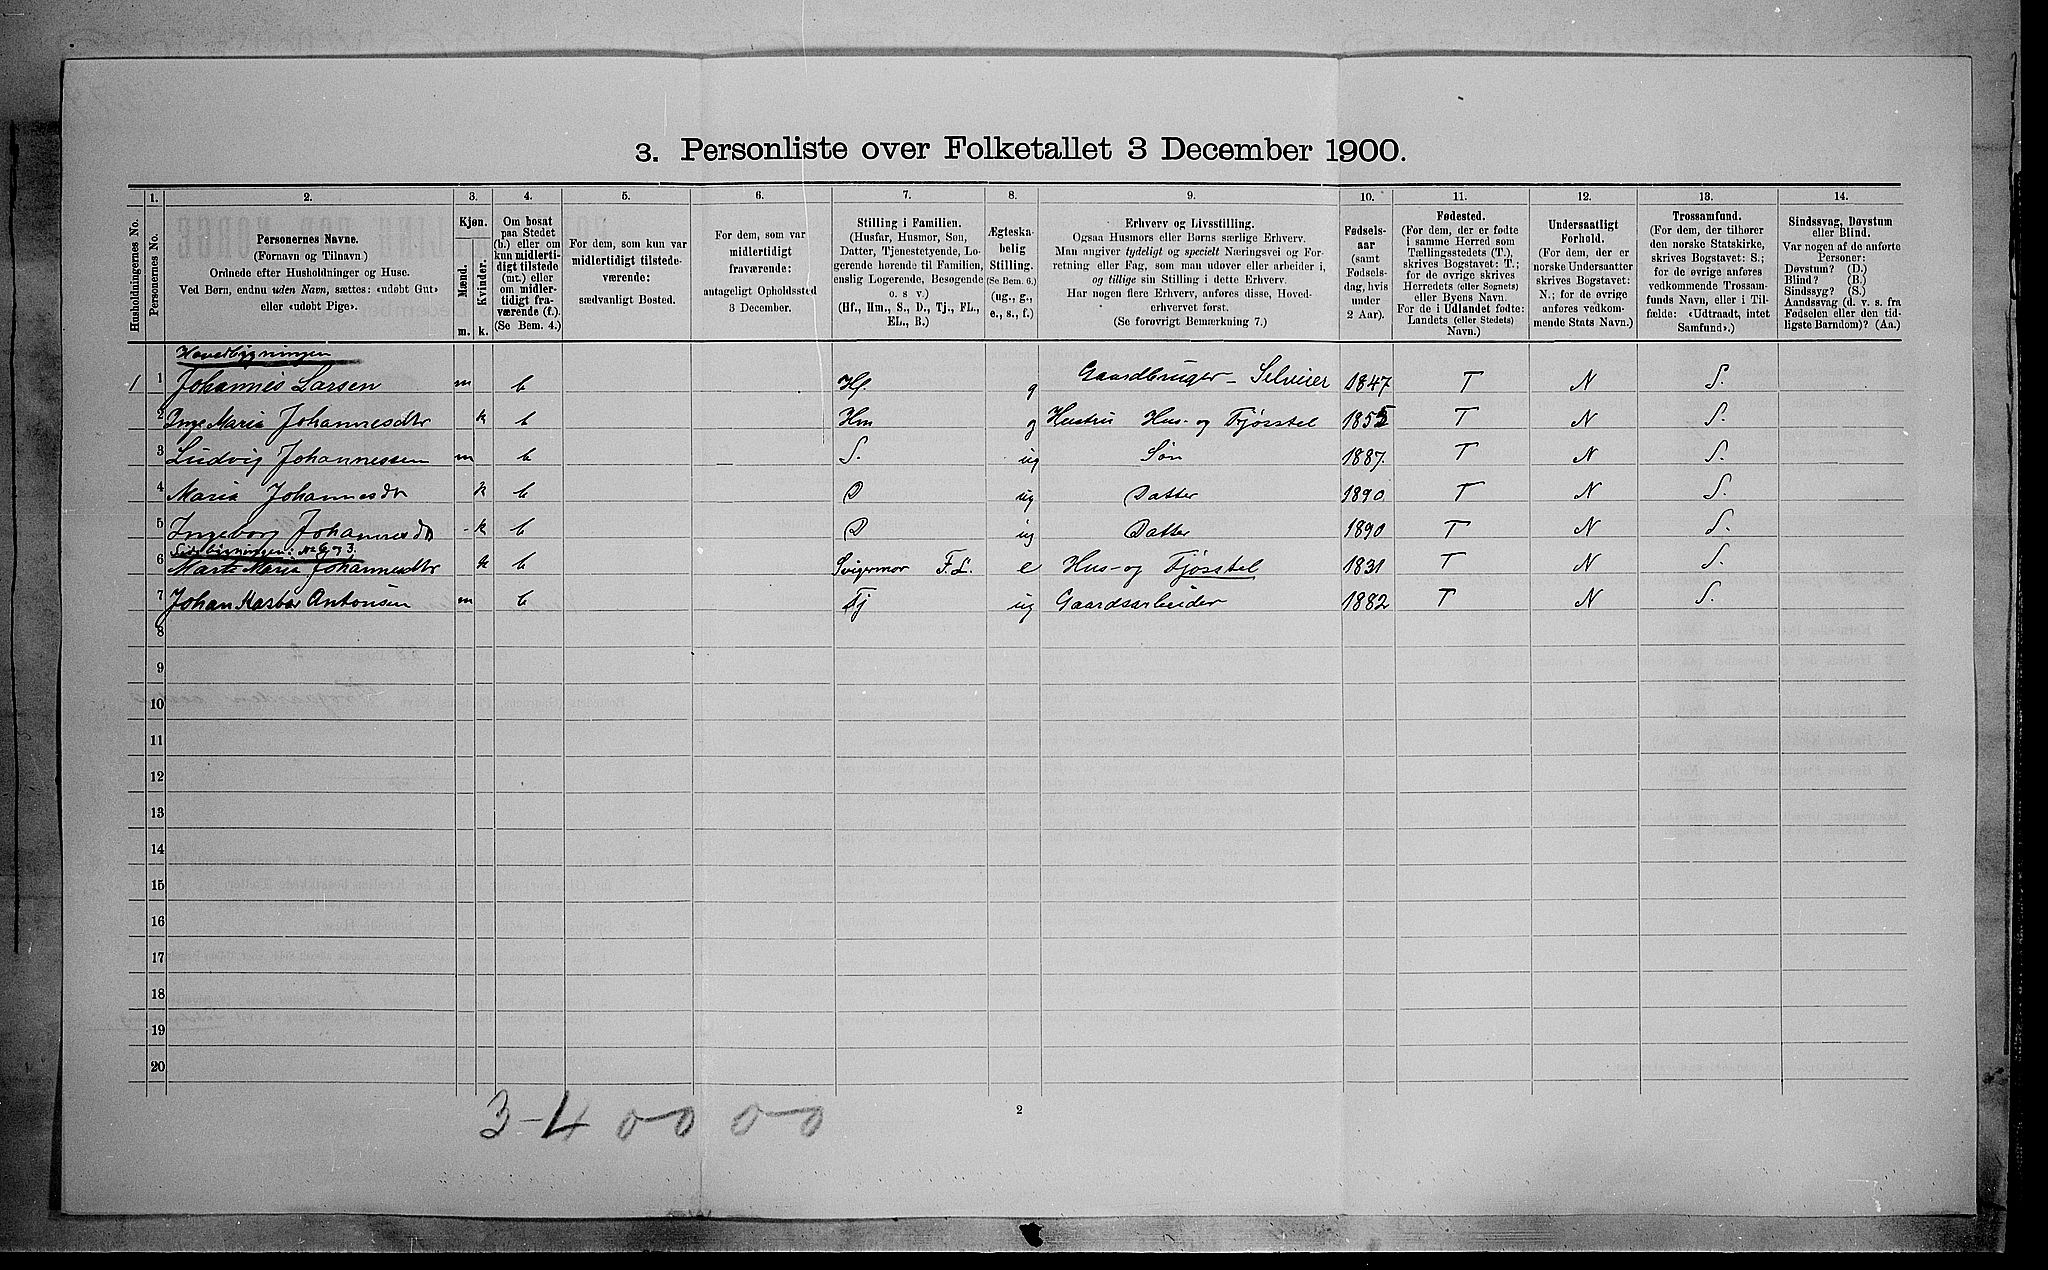 3. Personliste over Folketallet 3 December 1900.
Husholdningernes No.
1.
Personernes No.
2.
Personernes Navne.
(Fornavn og Tilnavn.)
Ordnede efter Husholdninger og Huse.
Ved Børn, endnu uden Navn, sættes: «udøbt Gut»
eller «udøbt Pige».
3.
Kjøn.
Mænd.
Kvinder.
m.
k.
4.
Om bosat
paa Stedet
(b.) eller om
kun midlerti-
digt tilstede
(mt.) eller
om midler-
tidigt fra-
værende (f.)
(Se Bem. 4.)
5.
For dem, som kun var
midlertidigt tilstede-
værende:
sædvanligt Bosted.
6.
For dem, som var
midlertidigt
fraværende:
antageligt Opholdssted
3 December.
7.
Stilling i Familien.
(Husfar, Husmor, Søn,
Datter, Tjenestetyende, Lo-
gerende hørende til Familien,
enslig Logerende, Besøgende
o. s v.)
(Hf., Hm., S., D., Tj., FL.,
EL., B.)
8.
Ægteska-
belig
Stilling.
(Se Bem. 6.)
(ug., g.,
e., s., f.)
9.
Erhverv og Livsstilling.
Ogsaa Husmors eller Børns særlige Erhverv.
Man angiver tydeligt og specielt Næringsvei og For-
retning eller Fag, som man udøver eller arbeider i,
og tillige sin Stilling i dette Erhverv.
Har nogen flere Erhverv, anføres disse, Hoved-
erhvervet først.
(Se forøvrigt Bemærkning 7.)
10.
Fødsels-
aar
(samt
Fødsels-
dag, hvis
under
2 Aar).
11.
Fødested.
(For dem, der er fødte
i samme Herred som
Tællingsstedets (T.),
skrives Bogstavet: T.;
for de øvrige skrives
Herredets (eller Sognets)
eller Byens Navn.
For de i Udlandet fødte:
Landets (eller Stedets)
Navn.)
12.
Undersaatligt
Forhold.
(For dem, der er
norske Undersaatter
skrives Bogstavet:
N.; for de øvrige
anføres vedkom-
mende Stats Navn.)
13.
Trossamfund.
(For dem, der tilhører
den norske Statskirke,
skrives Bogstavet: S.;
for de øvrige anføres
vedkommende Trossam-
funds Navn, eller i Til-
fælde: «Udtraadt, intet
Samfund».)
14.
Sindssvag, Døvstum
eller Blind.
Var nogen af de anførte
Personer:
Døvstum? (D.)
Blind? (B.)
Sindssyg? (S.)
Aandssvag (d. v. s. fra
Fødselen eller den tid-
ligste Barndom)? (Aa.)
Hovedbygningen
1 1 Johannes Larsen m b Hf. g Gaardbruger - Selveier 1847 T N S.
2 Inge Maria Johannesdtr k b Hm g Hustru Hus- og Fjøsstel 1855 T N S.
3 Ludvig Johannessen m b S. ug Søn 1887. T N S.
4 Maria Johannesdr k b D ug Datter 1890 T N S.
5 Ingeborg Johannesd k b D ug Datter 1890 T N S.
Sidebygningen: No 6 og 3.
6 Marte Maria Johannesdtr k b Svigermor F.L. e Hus- og Fjøsstel 1831 T N S.
7 Johan Antonsen m b Tj ug Gaardsarbeider 1882 T N S.
8
9
10
11
12
13
14
15
16
17
18
19
20
2
3-4 0-0 0-0